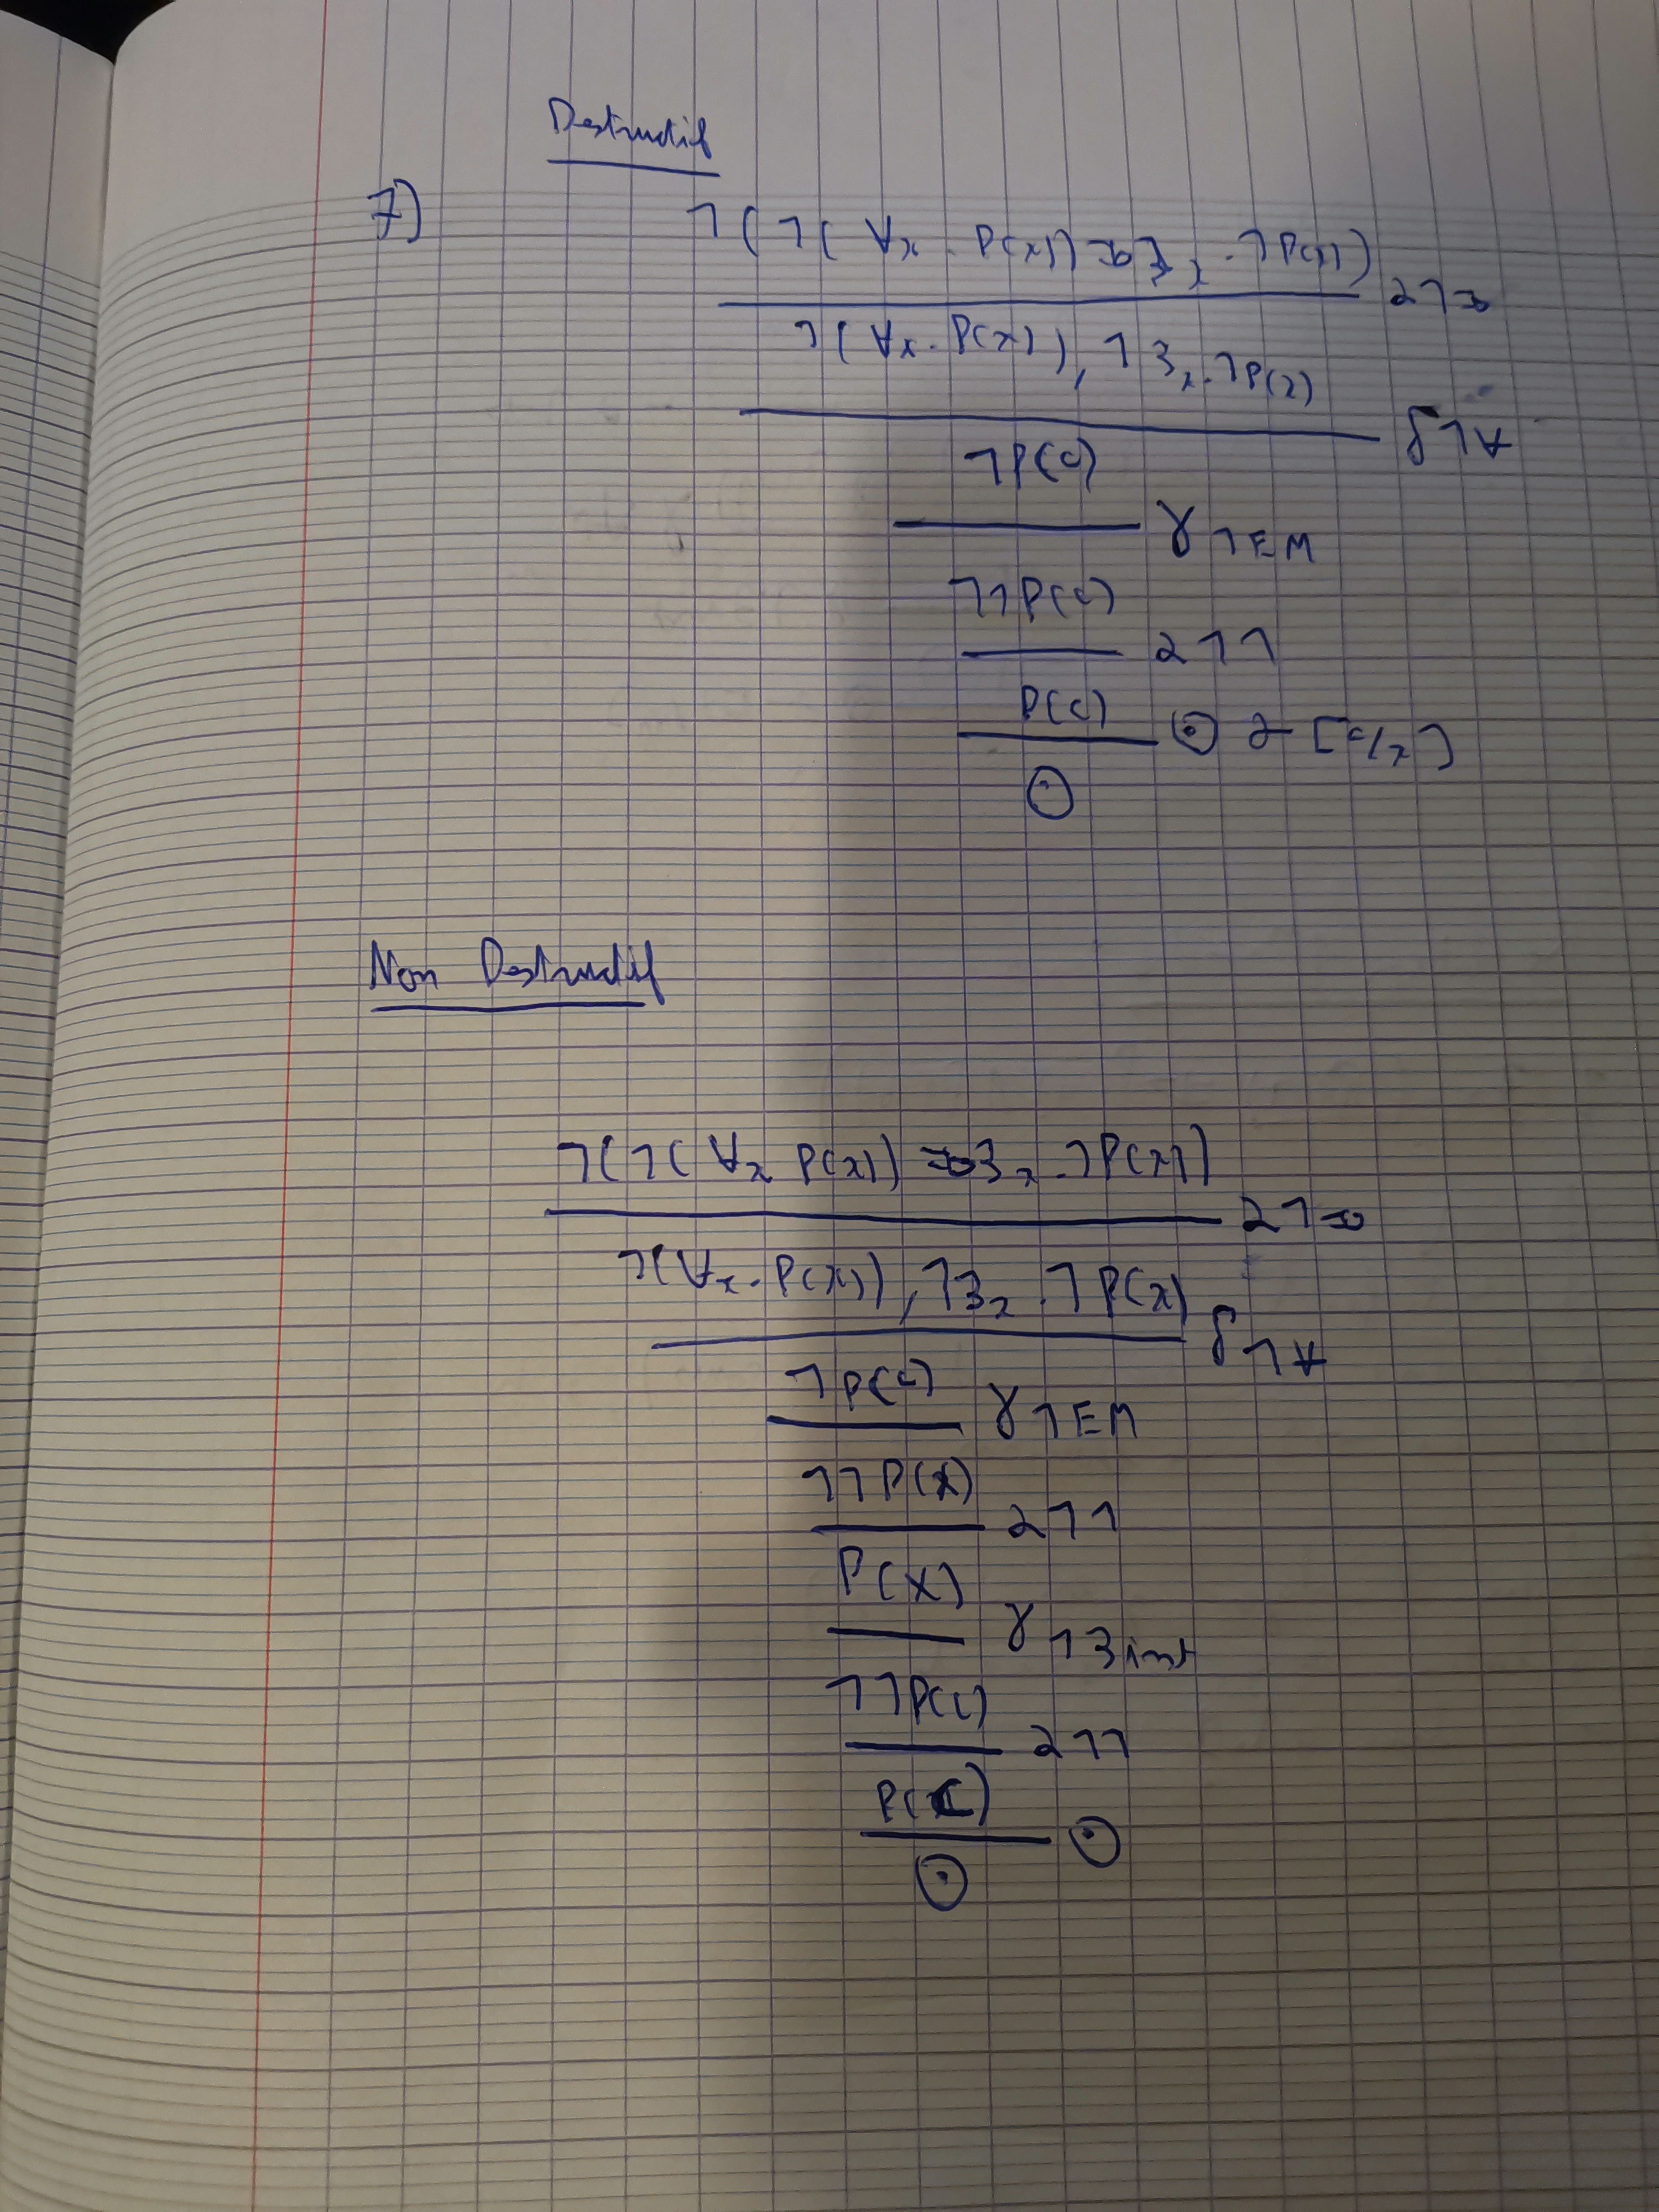 Destructif
7) ¬(¬(∀x . P(x)) ⇒ ∃x . ¬P(x)) α¬⇒
¬(∀x . P(x)), ¬∃x . ¬P(x)
δ¬∀
¬P(c)
γ¬∃M
¬¬P(c)
α¬¬
P(c)
⊙ σ = [c/X]
⊙
Non Destructif
¬(¬(∀x P(x)) ⇒ ∃x . ¬P(x))
α¬⇒
¬(∀x . P(x)), ¬∃x . ¬P(x)
δ¬∀
¬P(c)
γ¬∃M
¬¬P(X)
α¬¬
P(X)
γ¬∃inst
¬¬P(c)
α¬¬
P(c)
⊙
⊙